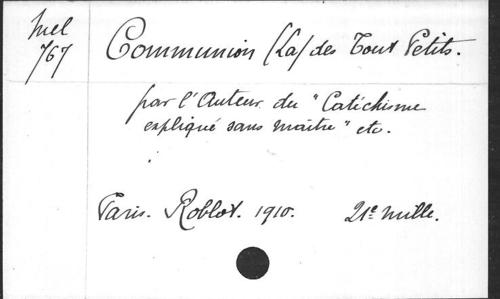 Mel
767
Communion (La) des Tout Petits.
par l'Auteur du "Catéchisme
expliqué sans maître" etc.
Paris. Roblot. 1910. 21e mille.